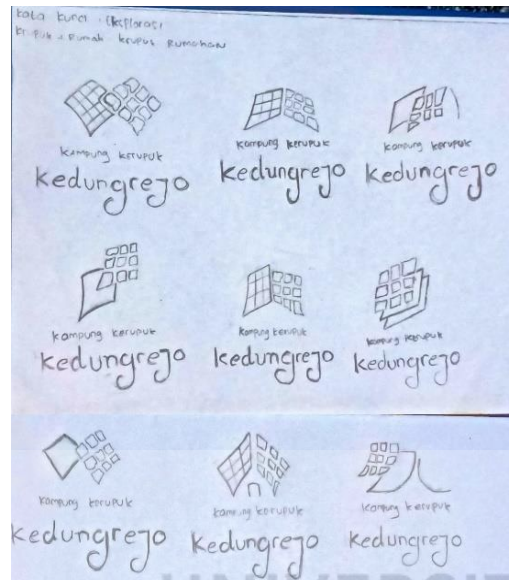 kata kunci : Eksplorasi
krupuk + Rumah krupuk Rumahan
kampung kerupuk
kedungrejo
kampung kerupuk
kedungrejo
kampung kerupuk
kedungrejo
kampung kerupuk
kedungrejo
kampung kerupuk
kedungrejo
kampung kerupuk
kedungrejo
kampung kerupuk
kedungrejo
kampung kerupuk
kedungrejo
kampung kerupuk
kedungrejo